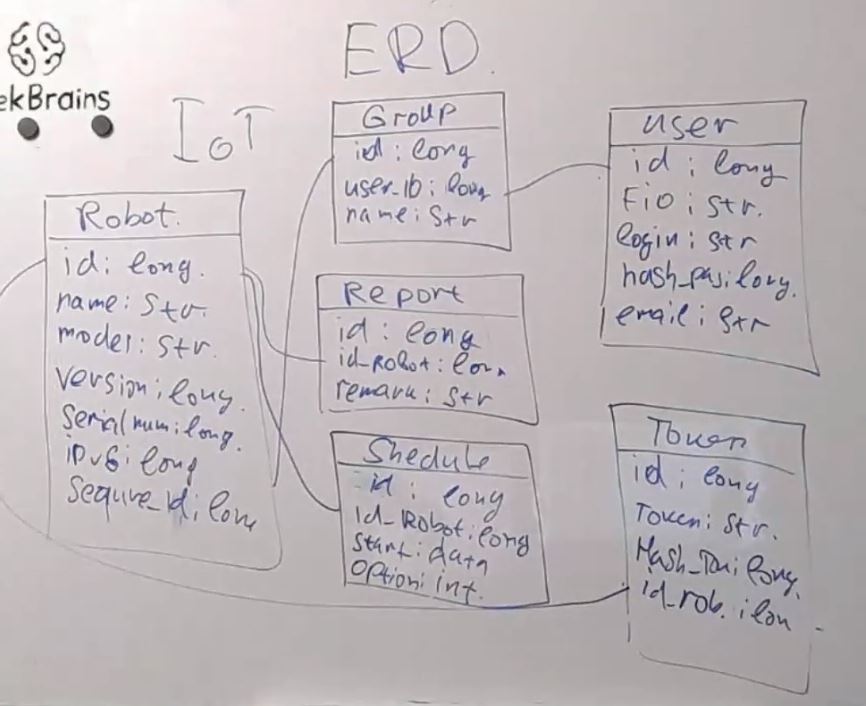 ekBrains
ERD.
IoT
Robot.
id: long.
name: Str.
model: Str.
Version: long.
Serial num: long.
ipv6: long
Sequre_id: long
Group
id: long
user_ID: long
name: Str
Report
id: long
id_Robot: lon.
remark: Str
Shedule
id: long
id_Robot: long
start: data
option: int.
user
id: long
FiO: Str.
login: str
hash_pas: long.
email: str
Token
id: long
Token: Str.
Hash_Tok: long.
id_rob.: lon